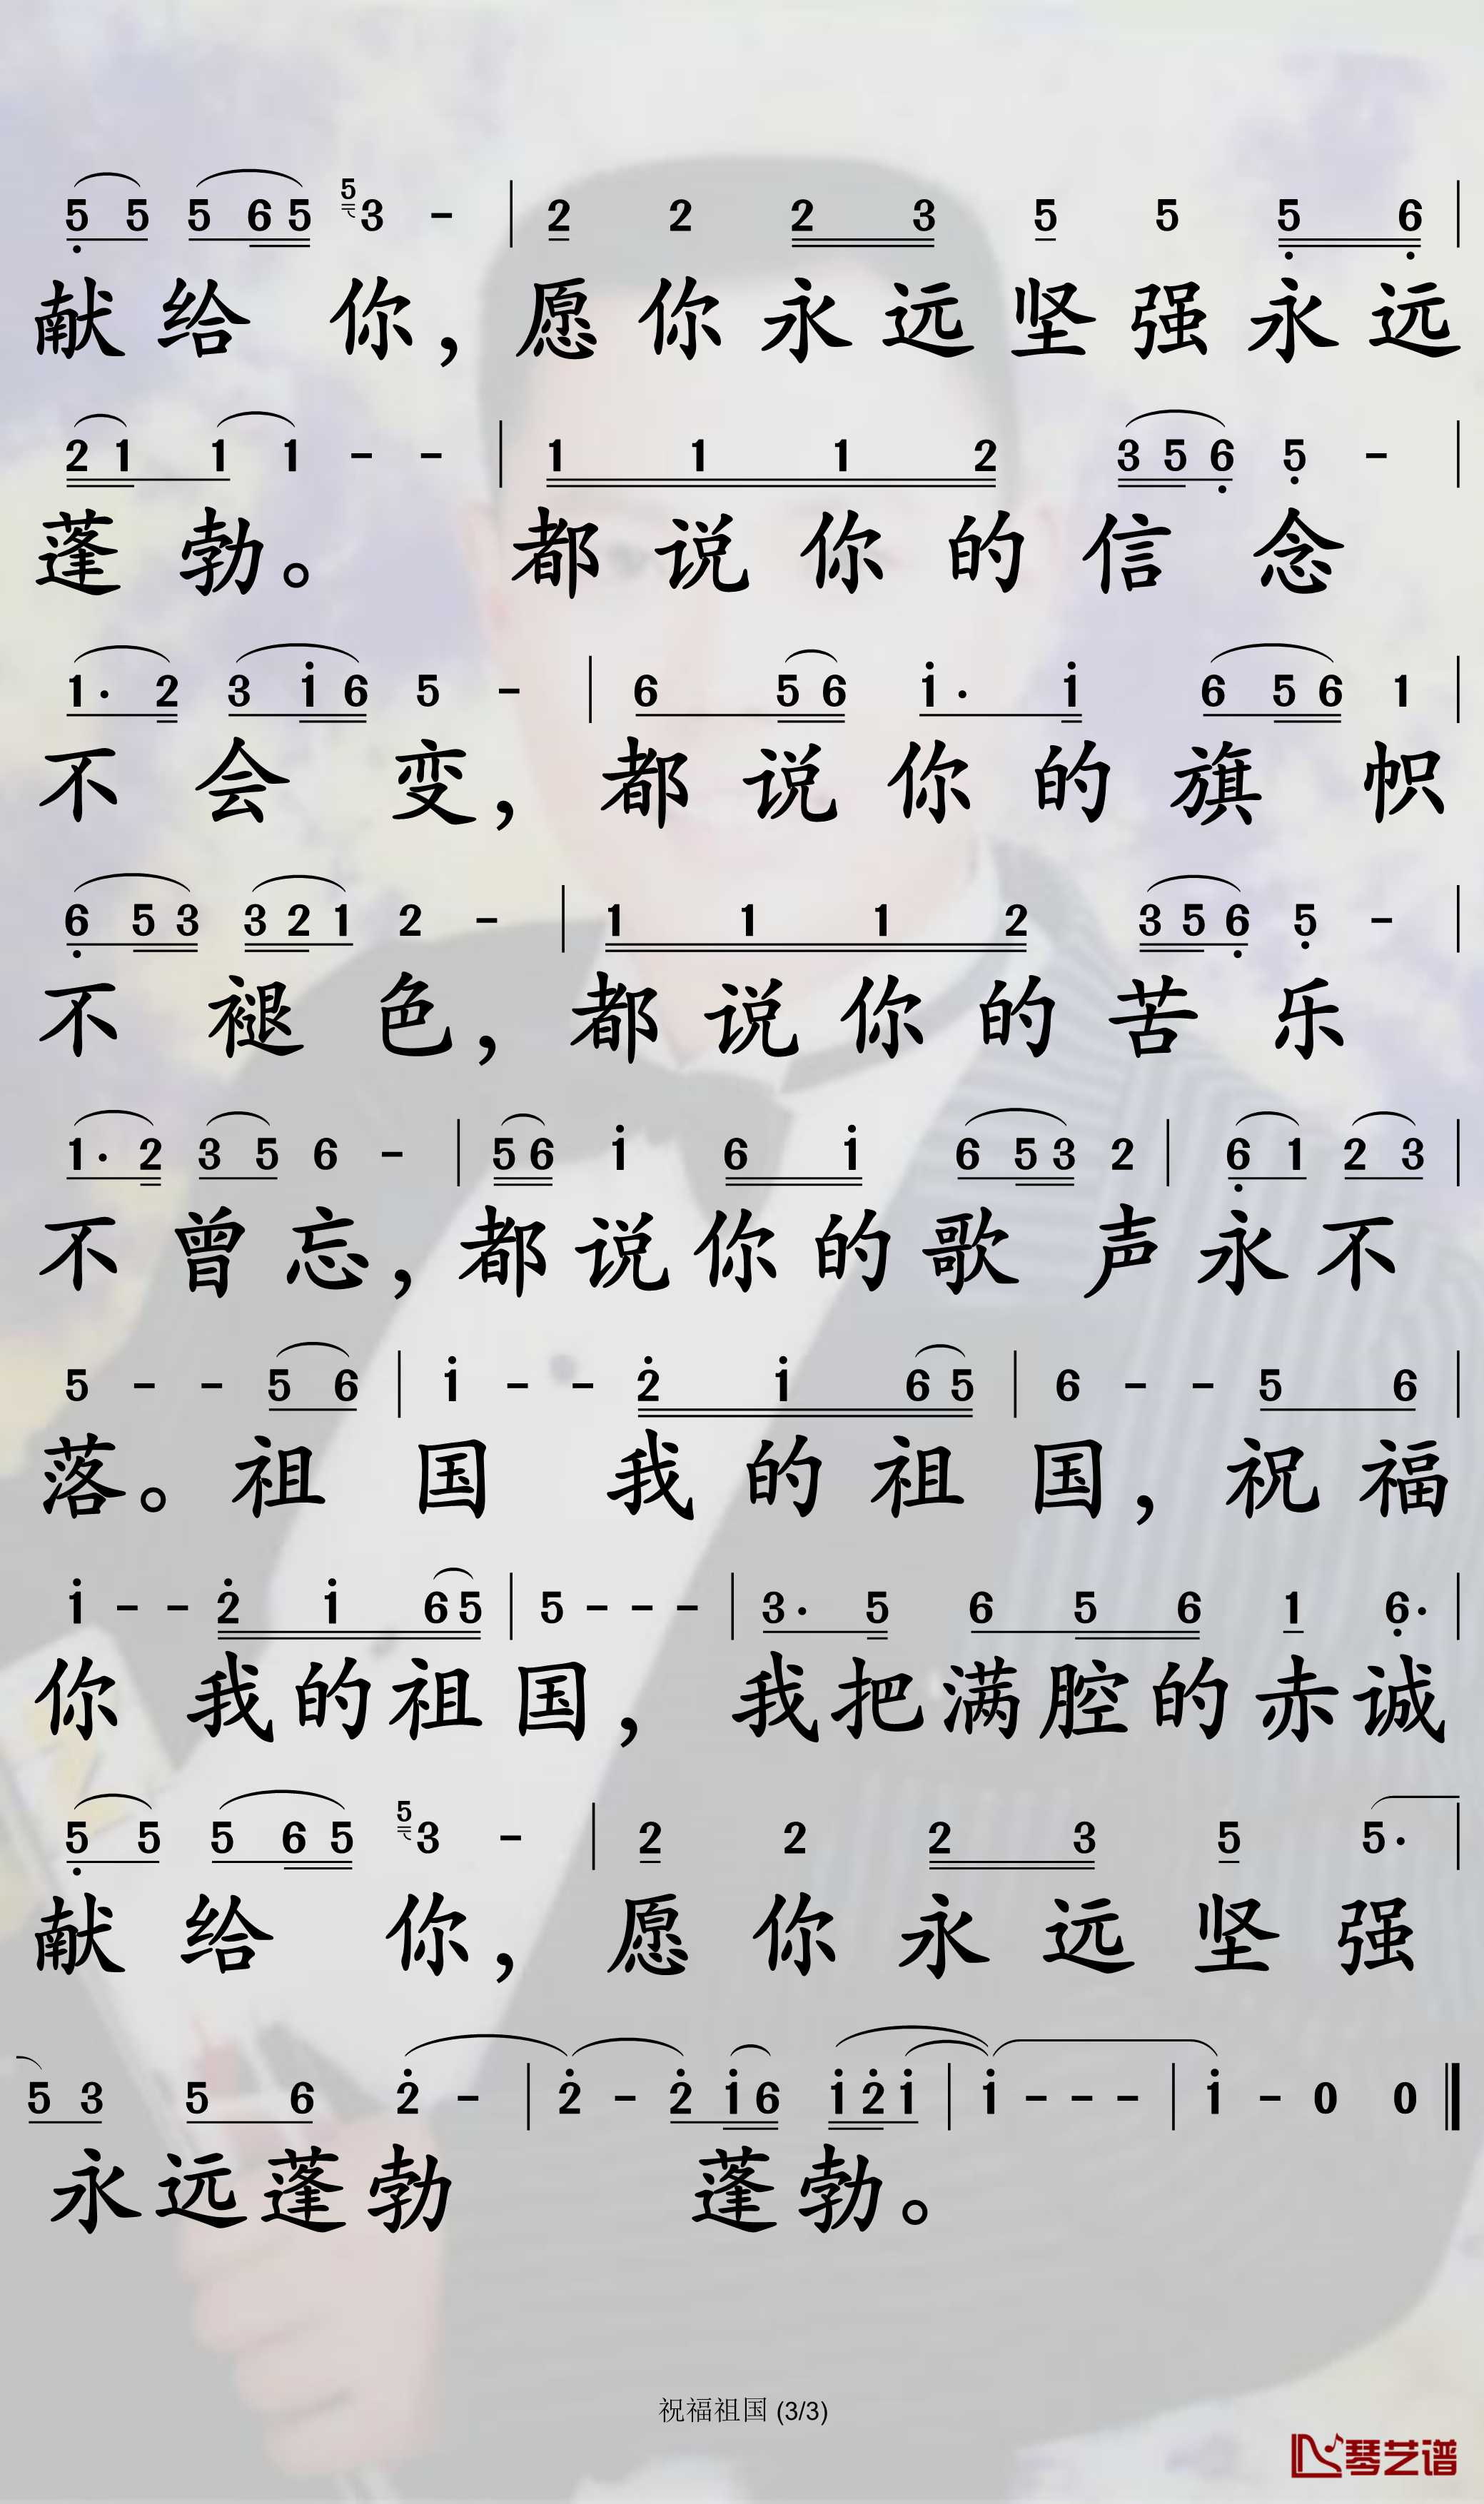 5 5 5 6 5 5 3 - | 2 2 2 3 5 5 5 6 |
献给 你，愿你永远坚强永远
2 1 1 1 - - | 1 1 1 2 3 5 6 5 - |
蓬勃。 都说你的信念
1· 2 3 i 6 5 - | 6 5 6 i· i 6 5 6 1 |
不会变，都说你的旗帜
6 5 3 3 2 1 2 - | 1 1 1 2 3 5 6 5 - |
不褪色，都说你的苦乐
1· 2 3 5 6 - | 5 6 i 6 i 6 5 3 2 | 6 1 2 3 |
不曾忘，都说你的歌声永不
5 - - 5 6 | i - - 2 i 6 5 | 6 - - 5 6 |
落。祖国 我的祖国，祝福
i - - 2 i 6 5 | 5 - - - | 3· 5 6 5 6 1 6· |
你 我的祖国，我把满腔的赤诚
5 5 5 6 5 5 3 - | 2 2 2 3 5 5· |
献给 你，愿你永远坚强
5 3 5 6 2 - | 2 - 2 i 6 i 2 i | i - - - | i - 0 0 ‖
永远蓬勃 蓬勃。
祝福祖国 (3/3)
琴艺谱